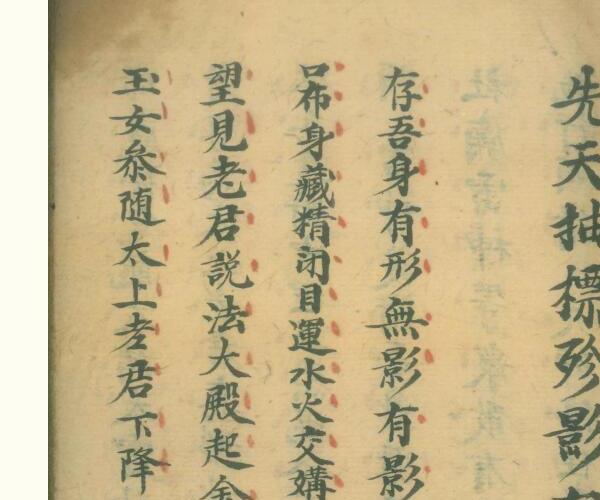 先天抽標殄影
存吾身有形無影有影
吕布身藏精闭目運水火交媾
望見老君説法大殿起金
玉女叅随太上老君下降